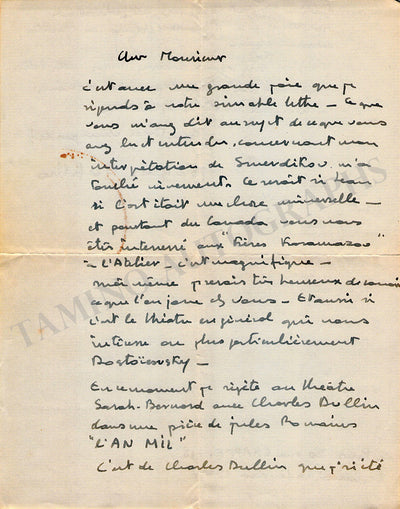 Cher Monsieur
C'est avec une grande joie que je
réponds à votre aimable lettre – Ce que
vous m'avez dit au sujet de ce que vous
avez lu et entendu, concernant mon
interprétation de Smerdikov, m'a
touché vivement. Ce serait si beau
si l'art était une chose universelle –
et pourtant du Canada vous vous
êtes intéressé aux "Frères Karamazov"
– L'Atelier. C'est magnifique –
moi même je serais très heureux de connaître
ce que l'on joue chez vous – Et aussi si
c'est le théâtre en général qui vous
intéresse ou plus particulièrement
Dostoïewsky –
En ce moment je répète au théâtre
Sarah-Bernard avec Charles Dullin
dans une pièce de Jules Romains
"L'AN MIL"
C'est de Charles Dullin que j'ai été
TAMINO AUTOGRAPHS